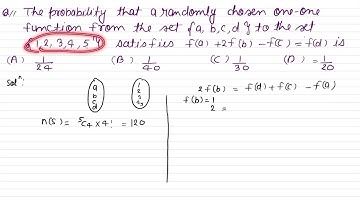 Q.// The probability that a randomly chosen one-one
function from the set {a, b, c, d} to the set
{1, 2, 3, 4, 5} satisfies f(a) + 2f(b) - f(c) = f(d) is
(A) 1/24 (B) 1/40 (C) 1/30 (D) = 1/20
Solⁿ:
a b c d
1 2 3
n(S) = ⁵C₄ × 4! = 120
2f(b) = f(d) + f(c) - f(a)
f(b) = 1
2 =